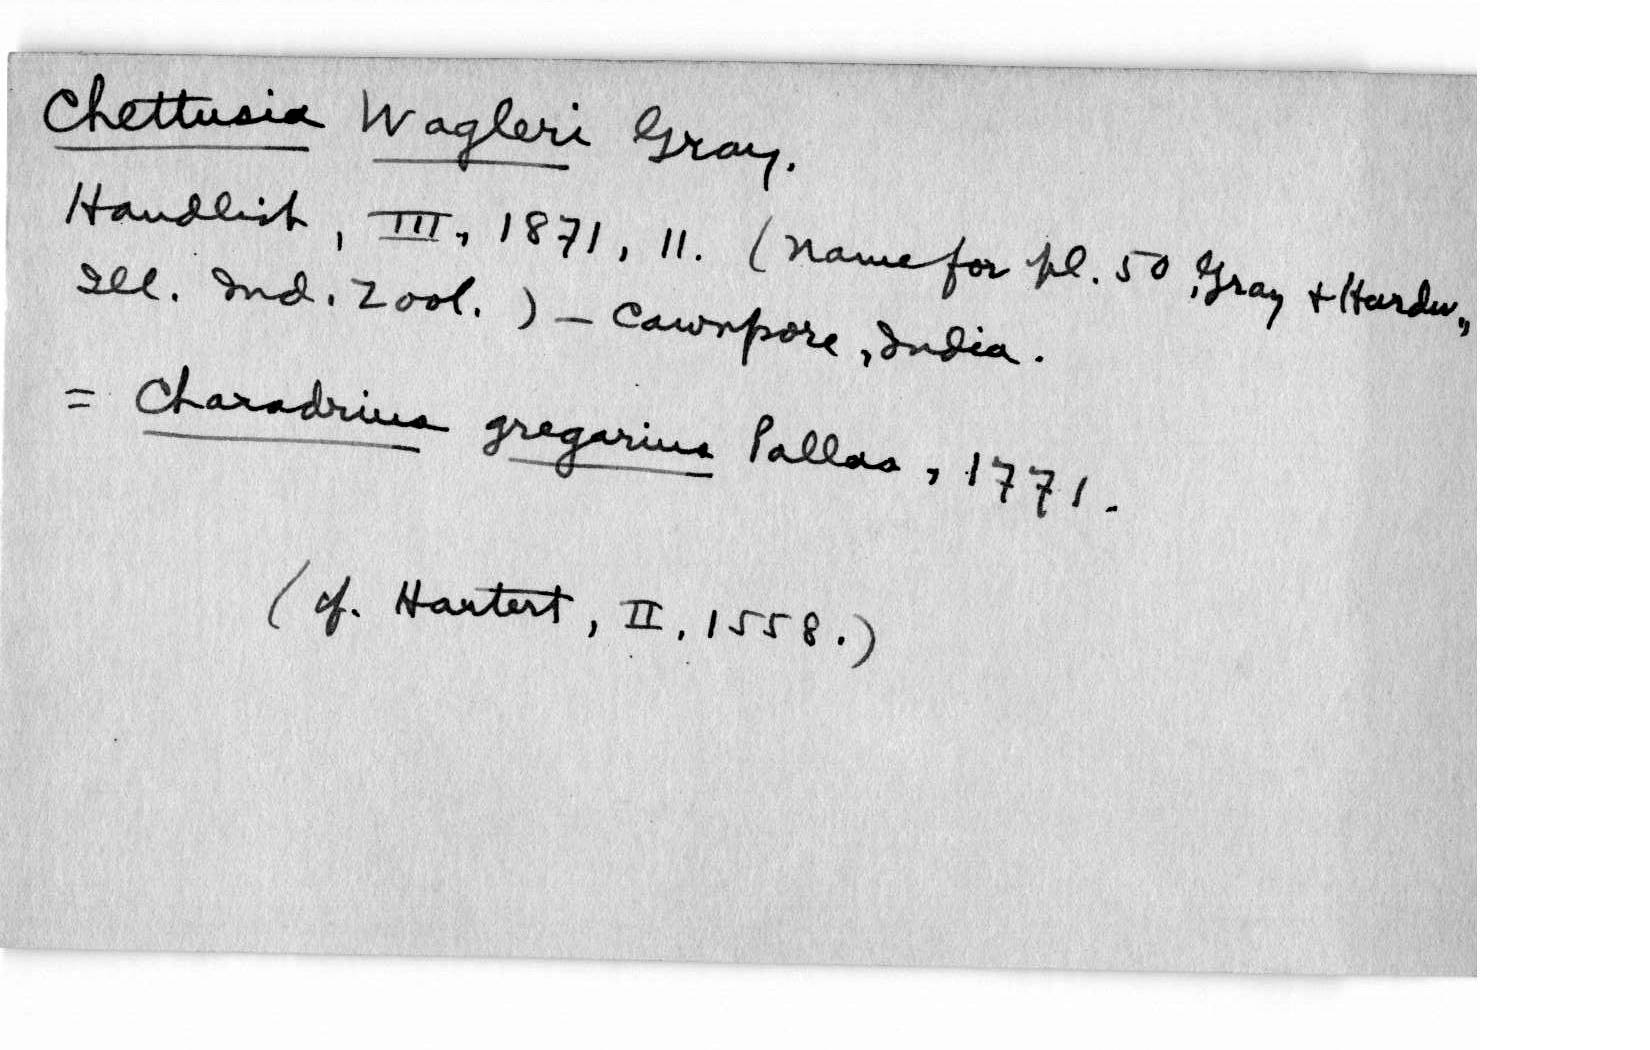 Chettusia Wagleri Gray.
Handlist, III, 1871, 11. (name for pl. 50, Gray + Hardw.,
Ill. Ind. Zool.) — Cawnpore, India.
= Charadrius gregarius Pallas, 1771.
(cf. Hartert, II, 1558.)